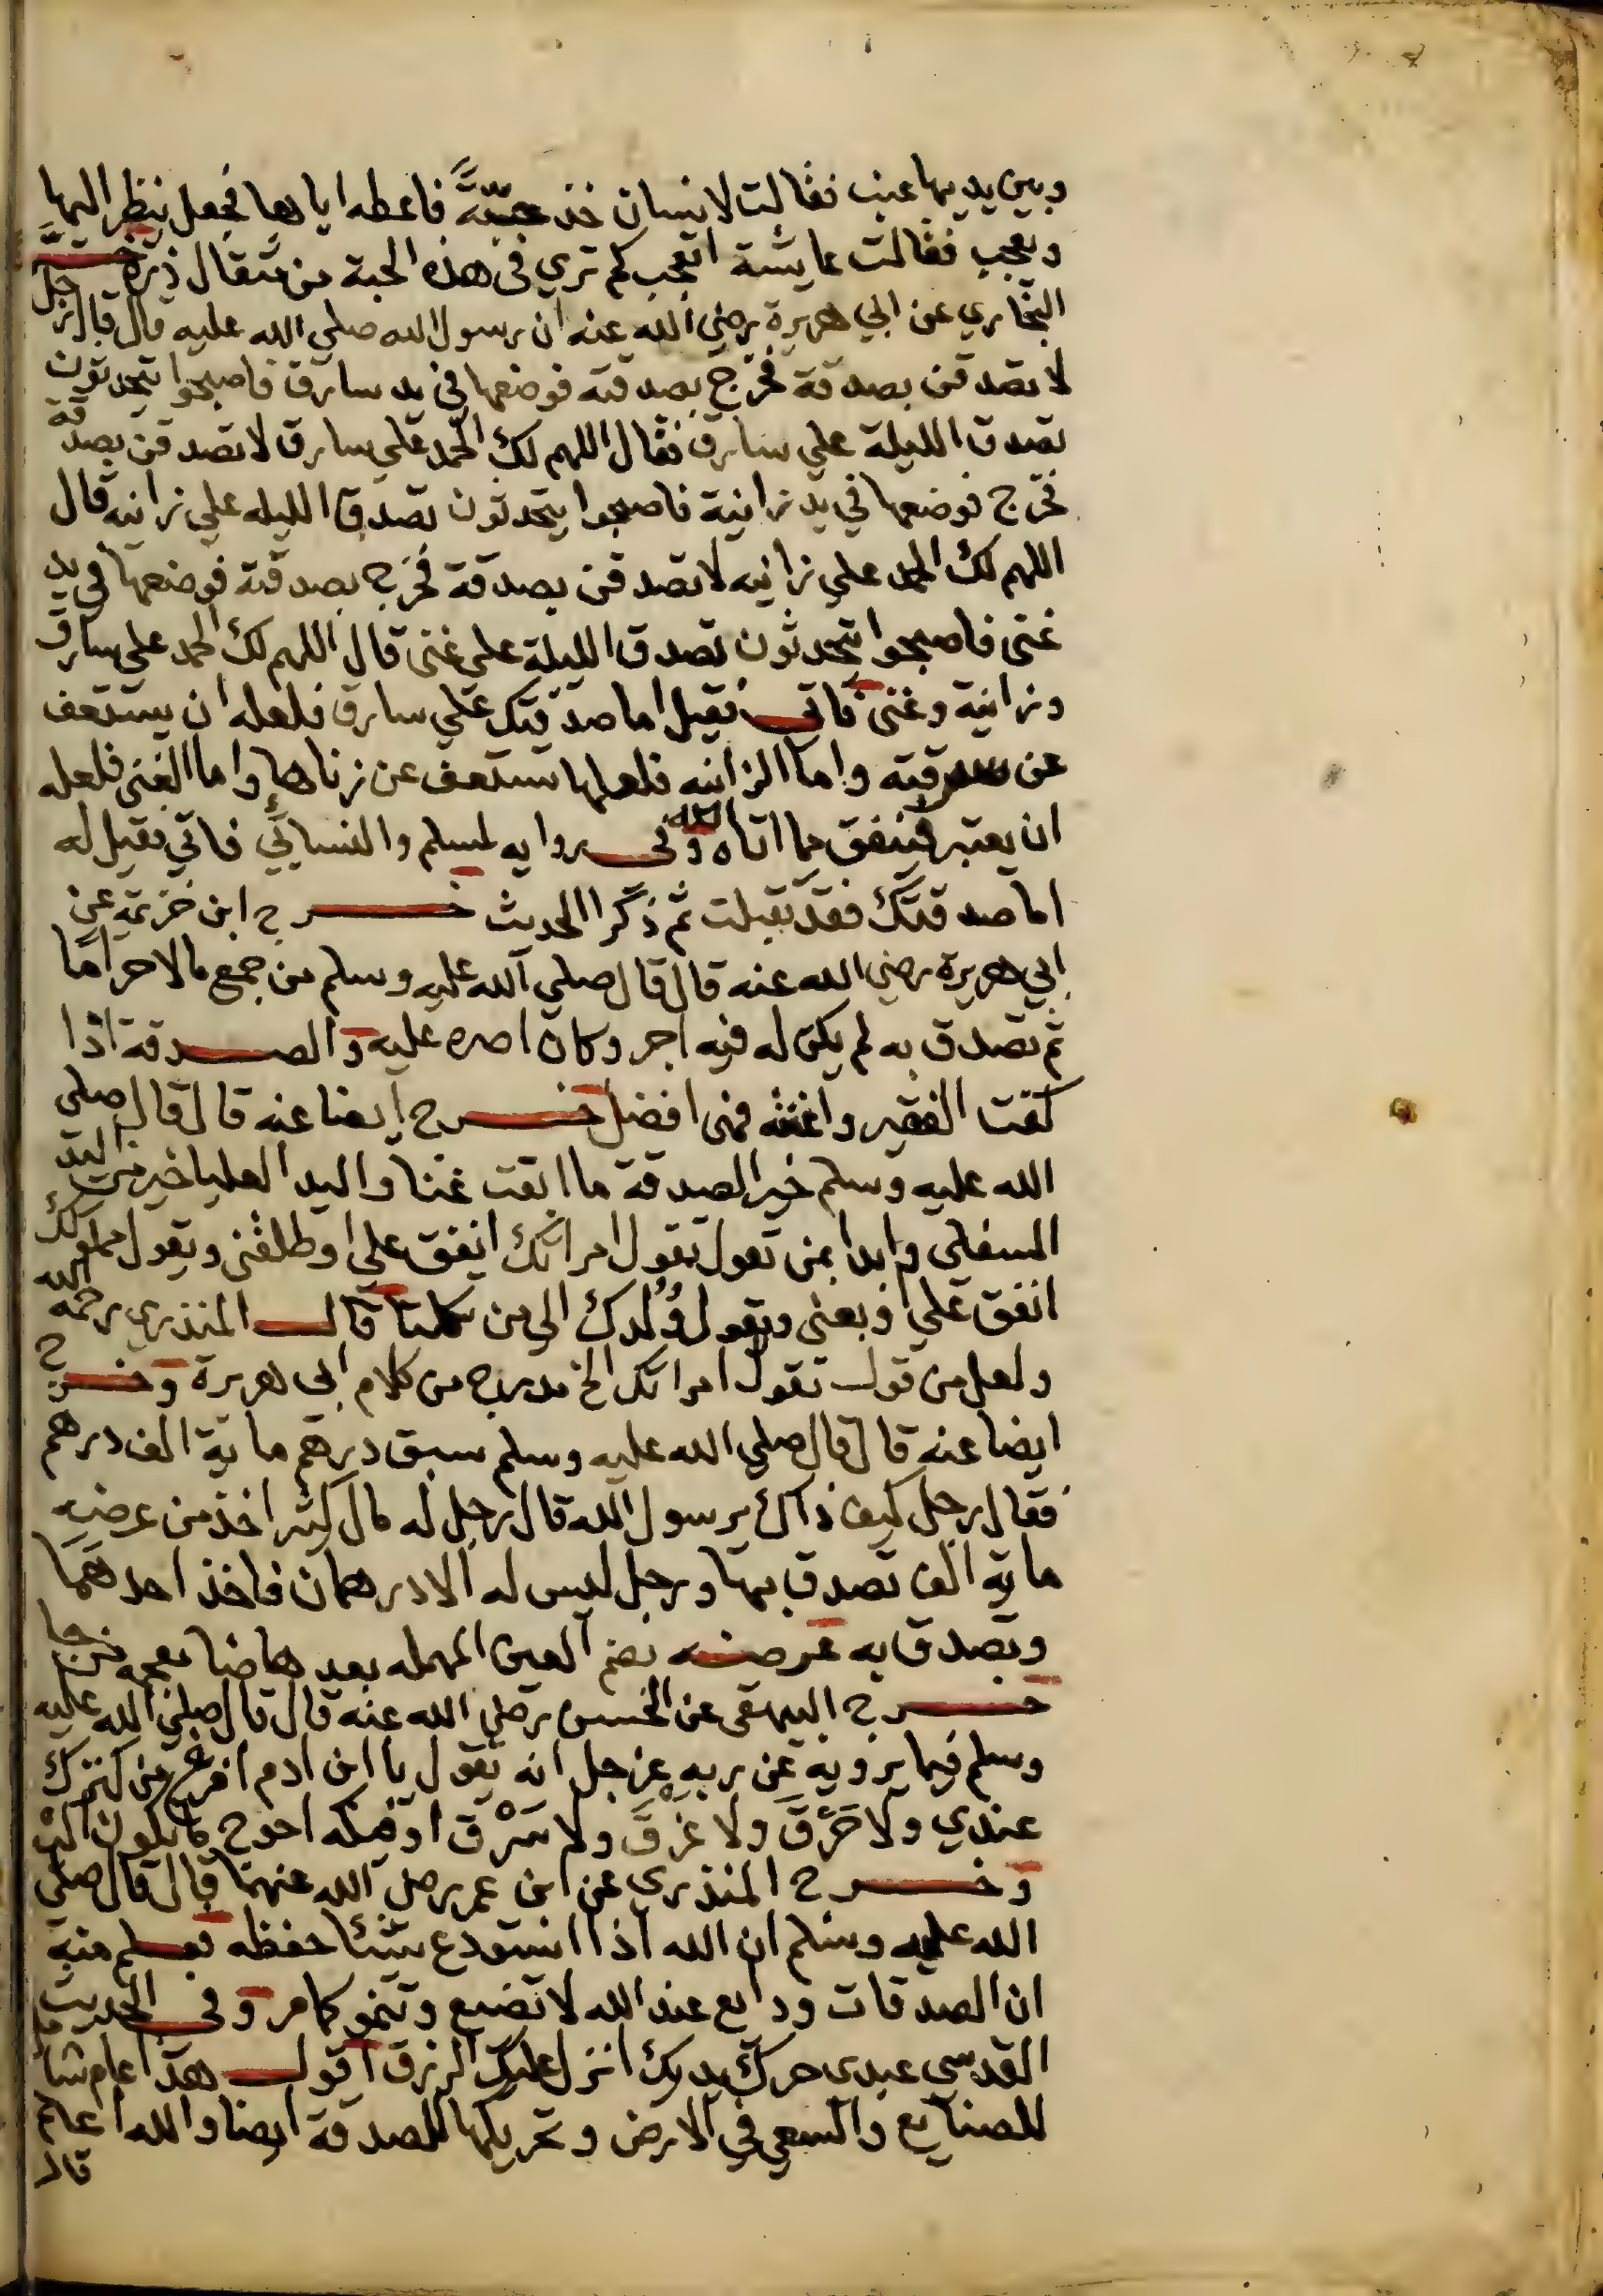 وبين يديها عنب فقالت لانسان خذ حبة فاعطه اياها فجعل ينظر اليها
ويعجب فقالت عايشة اتعجب كم تري في هذه الحبة من مثقال ذرة خرج
البخاري عن ابي هريرة رضي الله عنه ان رسول الله صلي الله عليه قال قال رجل
لاتصدقن بصدقة فخرج بصدقته فوضعها في يد سارق فاصبحوا يتحدثون
تصدق الليلة علي سارق فقال اللهم لك الحمد علي سارق لاتصدقن بصدقة
فخرج فوضعها في يد زانية فاصبحوا يتحدثون تصدق الليله علي زانيه قال
اللهم لك الحمد علي زانيه لاتصدقن بصدقة فخرج بصدقته فوضعها في يد
غني فاصبحوا يتحدثون تصدق الليلة علي غني قال اللهم لك الحمد علي سارق
وزانية وغني فاتي فقيل اما صدقتك علي سارق فلعله ان يستعف
عن سرقته واما الزانيه فلعلها تستعف عن زناها واما الغني فلعله
ان يعتبر فينفق مما اتاه الله وفي روايه لمسلم والنسائي فاتي فقيل له
اما صدقتك فقد تقبلت ثم ذكرا الحديث خرج ابن خزيمه عن
ابي هريرة رضي الله عنه قال قال صلي الله عليه وسلم من جمع مالا حراما
ثم تصدق به لم يكن له فيه اجر وكان اصره عليه والصدقة اذا
كفت الفقير واغنته فهي افضل خرج ايضا عنه قال قال صلي
الله عليه وسلم خير الصدقة ما ابقت غنا واليد العليا خير من اليد
السفلي وابدا بمن تعول تقول امراتك انفق علي او طلقني ويقول مملوكك
انفق علي او بعني ويقول ولدك الي من تكلنا قال المنذري رحمه الله
ولعل من قول تقول امراتك الخ مدرج من كلام ابي هريرة وخرج
ايضا عنه قال قال صلي الله عليه وسلم سبق درهم ماية الف درهم
فقال رجل كيف ذاك يرسول الله قال رجل له مال كثير اخذ من عرضه
ماية الف تصدق بها ورجل ليس له الا درهمان فاخذ احدهما
وتصدق به عرضه بضم العين المهمله بعدها ضا معجمه
خرج البيهقي عن الحسن رضي الله عنه قال قال صلي الله عليه
وسلم فيما يرويه عن ربه عز جل انه يقول يا ابن ادم افرغ من كنزك
عندي ولا حرق ولا غرق ولا سرق اوفيكه احوج ما تكون اليه
وخرج المنذري عن ابن عمر رضي الله عنهما قال قال صلي
الله عليه وسلم ان الله اذا استودع شيئا حفظه فعلم منه
ان الصدقات ودايع عند الله لا تضيع وتنمو كما مر وفي الحديث
القدسي عبدي حرك يديك انزل عليك الرزق اقول هذا عام
للصنايع والسعي في الارض وتحريكها للصدقة ايضا والله اعلم
قال